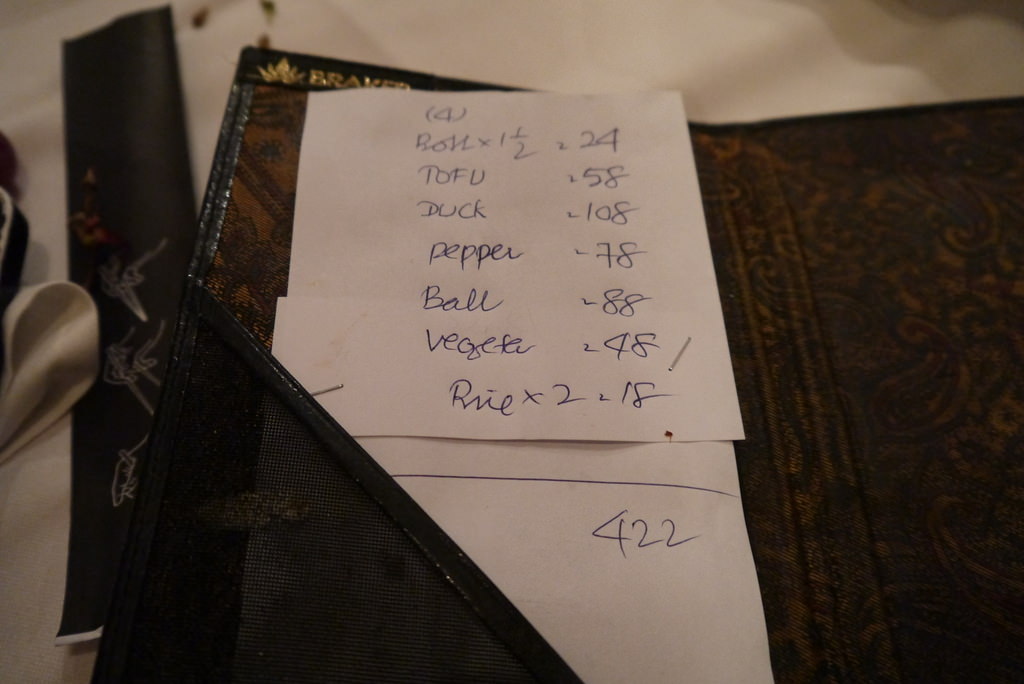 (4)
Roll x 1 1/2 = 24
TOFU = 58
DUCK = 108
pepper = 78
Ball = 88
vegeter = 48
Rrie x 2 = 18
422